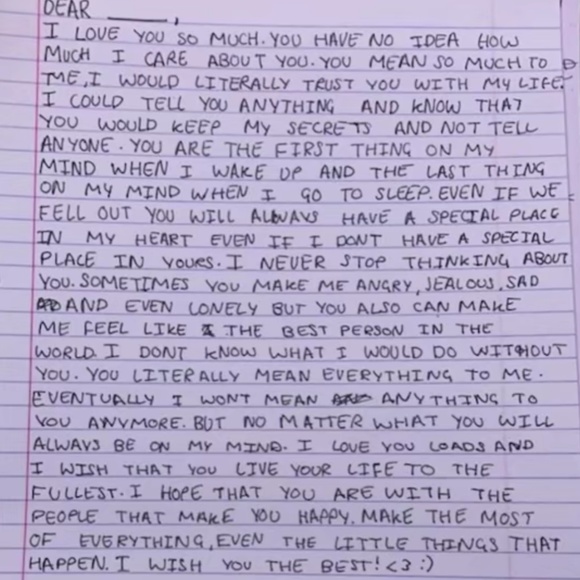 DEAR ______,
I LOVE YOU SO MUCH. YOU HAVE NO IDEA HOW
MUCH I CARE ABOUT YOU. YOU MEAN SO MUCH TO
ME, I WOULD LITERALLY TRUST YOU WITH MY LIFE.
I COULD TELL YOU ANYTHING AND KNOW THAT
YOU WOULD KEEP MY SECRETS AND NOT TELL
ANYONE. YOU ARE THE FIRST THING ON MY
MIND WHEN I WAKE UP AND THE LAST THING
ON MY MIND WHEN I GO TO SLEEP. EVEN IF WE
FELL OUT YOU WILL ALWAYS HAVE A SPECIAL PLACE
IN MY HEART EVEN IF I DONT HAVE A SPECIAL
PLACE IN YOURS. I NEVER STOP THINKING ABOUT
YOU. SOMETIMES YOU MAKE ME ANGRY, JEALOUS, SAD
AND EVEN LONELY BUT YOU ALSO CAN MAKE
ME FEEL LIKE THE BEST PERSON IN THE
WORLD. I DONT KNOW WHAT I WOULD DO WITHOUT
YOU. YOU LITERALLY MEAN EVERYTHING TO ME.
EVENTUALLY I WONT MEAN ANYTHING TO
YOU ANYMORE. BUT NO MATTER WHAT YOU WILL
ALWAYS BE ON MY MIND. I LOVE YOU LOADS AND
I WISH THAT YOU LIVE YOUR LIFE TO THE
FULLEST. I HOPE THAT YOU ARE WITH THE
PEOPLE THAT MAKE YOU HAPPY. MAKE THE MOST
OF EVERYTHING, EVEN THE LITTLE THINGS THAT
HAPPEN. I WISH YOU THE BEST! <3 :)